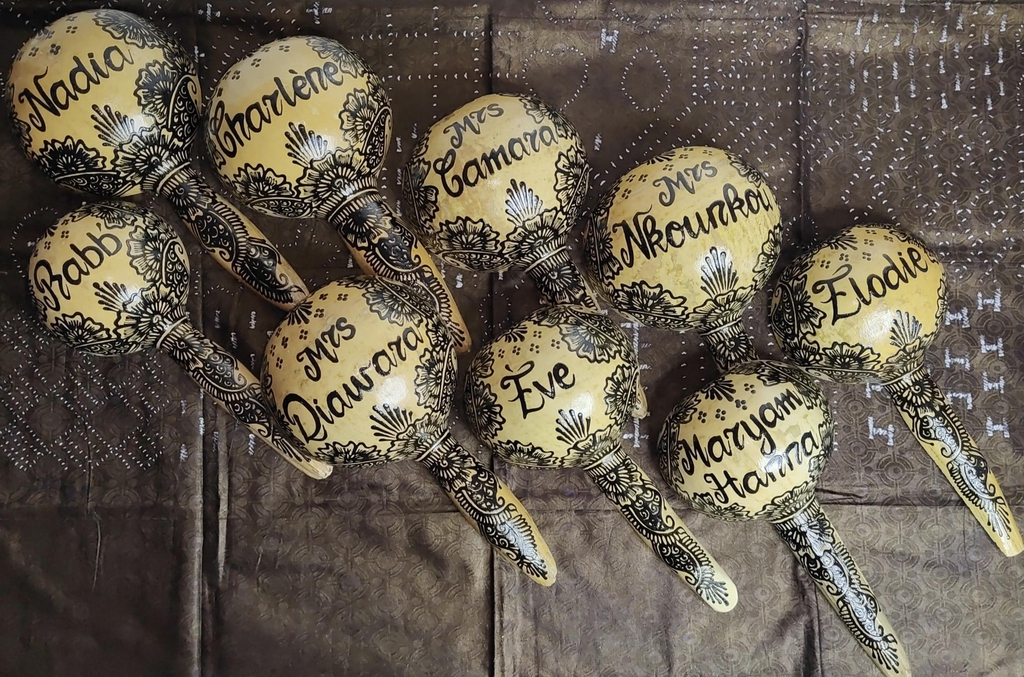 Nadia
Charlène
Mrs
Camara
Mrs
Nkounkou
Elodie
Rabb
Mrs
Diawara
Eve
Maryam
Hanna